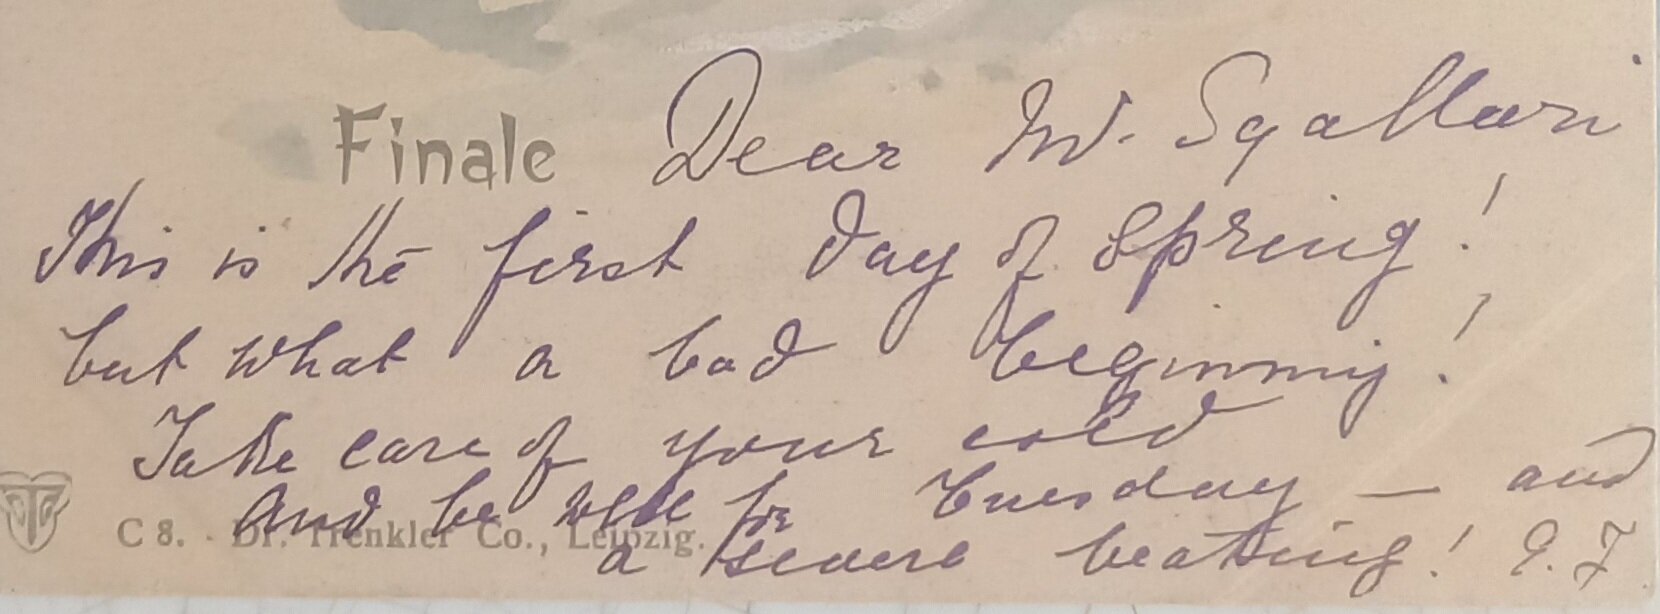 Finale Dear Mr. Sgallari
This is the first day of Spring!
but what a bad beginning!
Take care of your cold
and be well for Tuesday — and
a severe beating! J. F.
C 8. Dr. Trenkler Co., Leipzig.